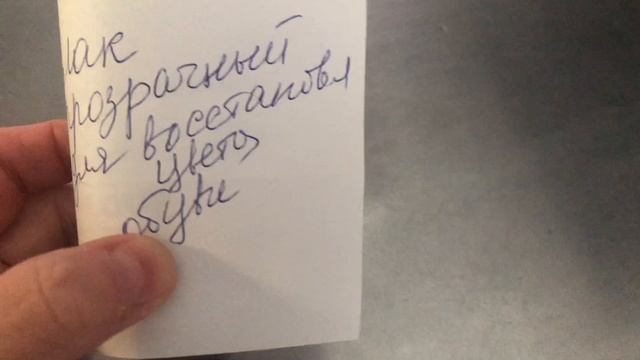 лак
прозрачный
для восстановл
цвета
обуви